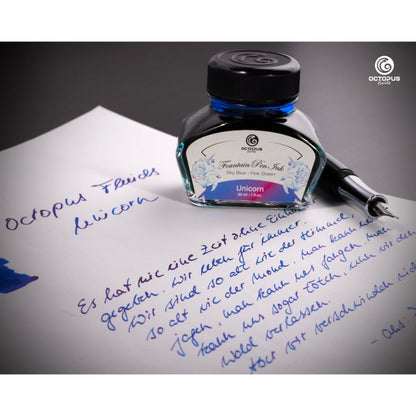 OCTOPUS
Fluids
OCTOPUS
Fountain Pen Ink
Sky Blue - Pink Sheen
Unicorn
30 ml
Octopus Fluids
Unicorn
Es hat nie eine Zeit ohne Einh
gegeben. Wir leben für immer.
Wir sind so alt wie der Himmel,
so alt wie der Mond. Man kann uns
jagen, man kann uns fangen, man
kann uns sogar töten, wenn wir den
Wald verlassen.
wir verschwinden nicht
- aus: